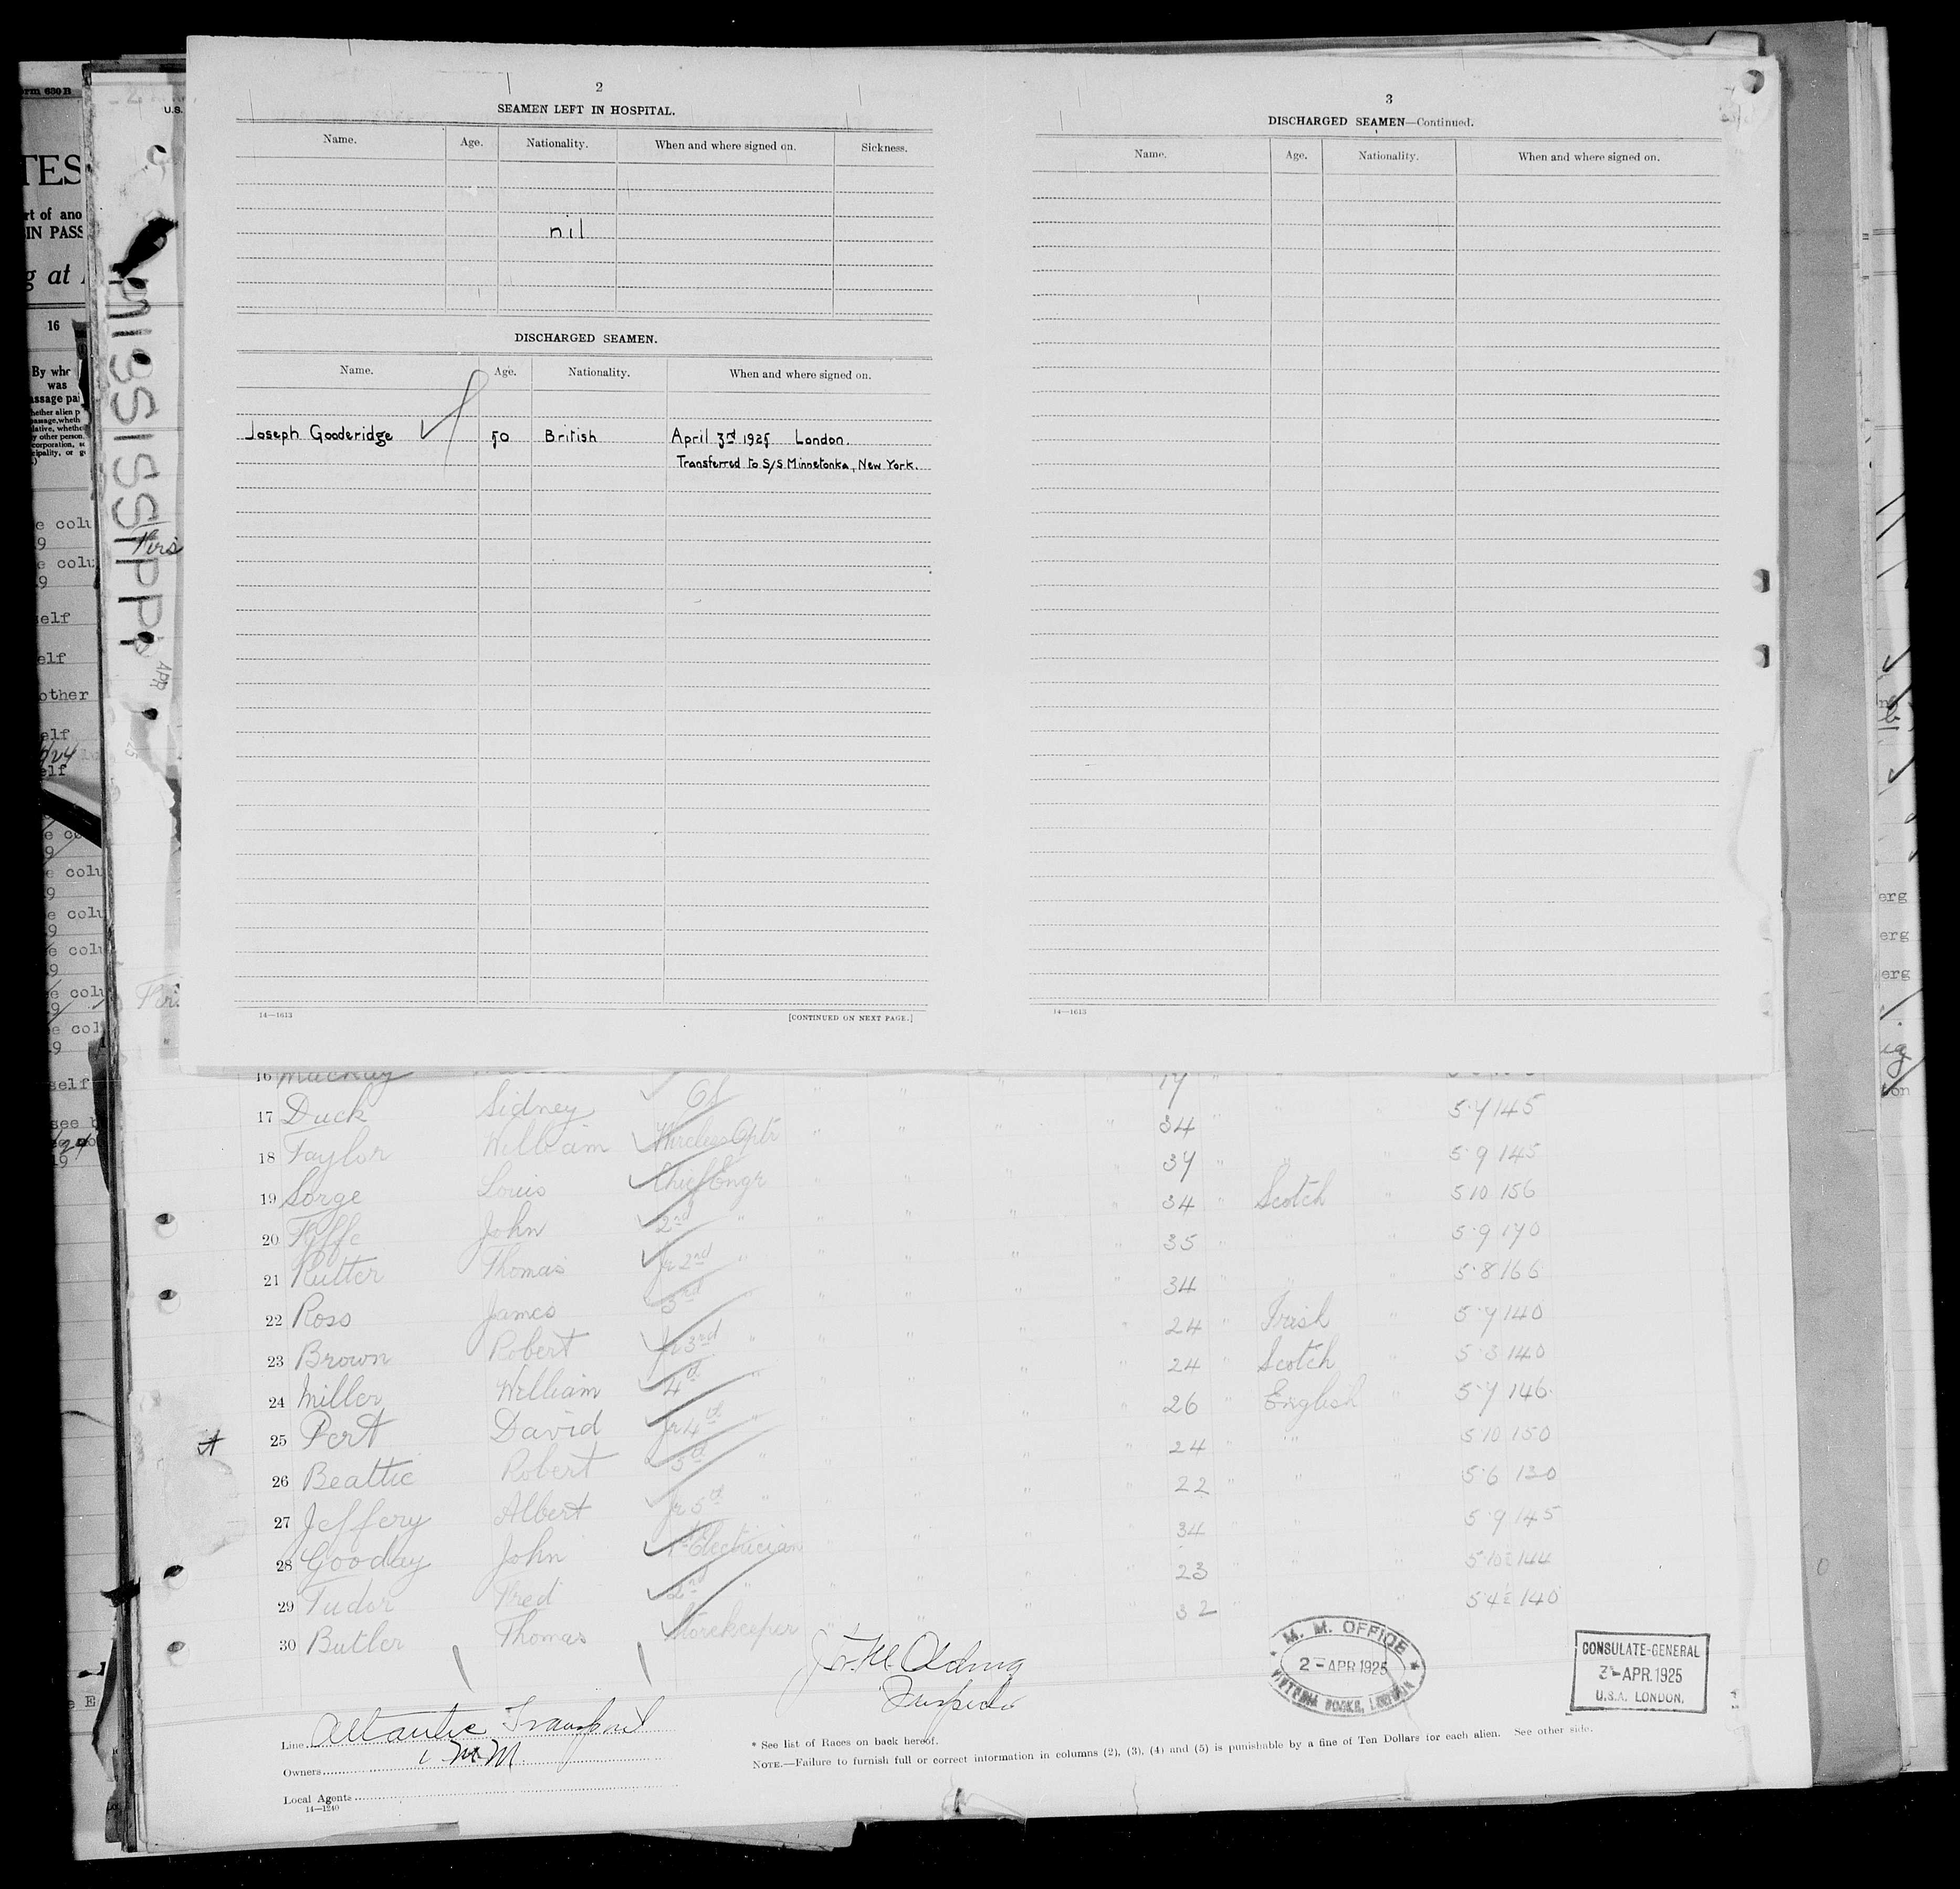 2
SEAMEN LEFT IN HOSPITAL.
Name. Age. Nationality. When and where signed on. Sickness.
nil
DISCHARGED SEAMEN.
Name. Age. Nationality. When and where signed on.
Joseph Gooderidge 50 British April 3rd 1925 London.
Transferred to S/S Minnetonka, New York.
14—1613 [CONTINUED ON NEXT PAGE.]
3
DISCHARGED SEAMEN—Continued.
Name. Age. Nationality. When and where signed on.
14—1613
MISSISSIPPI
APR
16 Mackay 17
17 Duck Sidney 34 5·7 145
18 Taylor William Wireless Optr 37 5·9 145
19 Sorge Louis Chief Engr 34 Scotch 5 10 156
20 Fyffe John 2nd " 35 5·9 170
21 Rutter Thomas Jr 2nd " 34 5·8 166
22 Ross James 3rd 24 Irish 5·7 140
23 Brown Robert Jr 3rd " 24 Scotch 5·8 140
24 Miller William 4th " 26 English 5·7 146
25 Pert David Jr 4th " 24 5·10 150
26 Beattie Robert 5th " 22 5·6 130
27 Jeffery Albert Jr 5th " 34 5·9 145
28 Gooday John Electrician 23 144
29 Tudor Fred 2nd " 32 5·4½ 140
30 Butler Thomas Storekeeper
M. M. OFFICE
2 – APR 1925
VICTORIA DOCKS, LONDON
CONSULATE-GENERAL
3 – APR. 1925
U.S.A. LONDON.
Line Atlantic Transport
Owners I M M
Local Agents
14—1240
* See list of Races on back hereof.
NOTE.—Failure to furnish full or correct information in columns (2), (3), (4) and (5) is punishable by a fine of Ten Dollars for each alien. See other side.